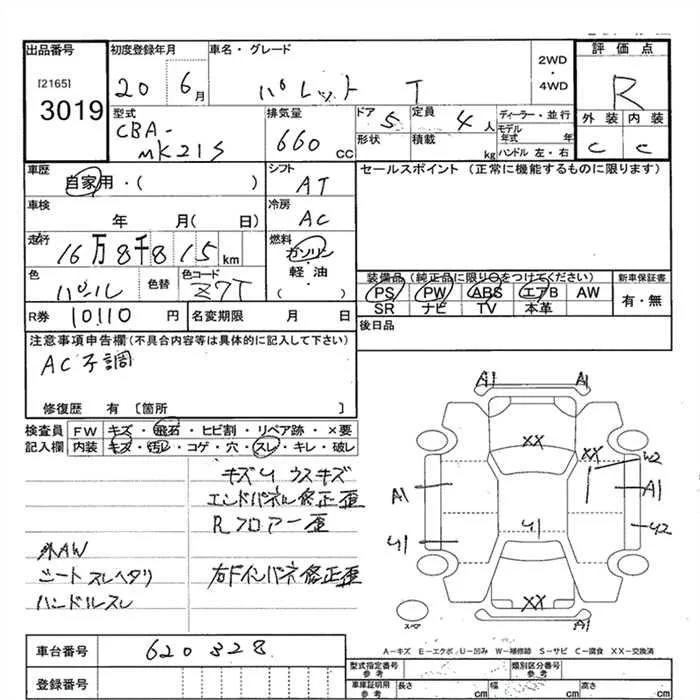 出品番号
[2165]
3019
初度登録年月
20 6月
車名・グレード
パレット T
2WD
・
4WD
評価点
R
外装 内装
C C
型式
CBA-
MK21S
排気量
660 CC
ドア 5
定員 4 人
形状
積載 kg
ディーラー・並行
モデル年式 年
ハンドル 左・右
車歴
自家用・( )
シフト
AT
セールスポイント (正常に機能するものに限ります)
車検
年 月( 日)
冷房
AC
走行
16万8千815 km
燃料
ガソリン
・
軽油
・
( )
色
パール
色替
色コード
Z7T
装備品 (純正品に限り○をつけてください)
PS PW ABS エアB AW
SR ナビ TV 本革
新車保証書
有・無
R券 10,110 円
名変期限 月 日
後日品
注意事項申告欄(不具合内容等は具体的に記入して下さい)
AC不調
修復歴 有 [箇所 ]
検査員 FW キズ・飛石・ヒビ割・リペア跡・×要
記入欄 内装 キズ・汚レ・コゲ・穴・スレ・キレ・破レ
キズU ウスキズ
エンドパネル修正歪
Rフロアー歪
外AW
シートスレヘタリ
右Fインパネ修正歪
ハンドルスレ
A1 A1
XX
XX W2
A1 A1
U1 U1 U2
XX
A1
スペア
A-キズ E-エクボ U-凹み W-補修跡 S-サビ C-腐食 XX-交換済
車台番号 620328
登録番号
型式指定番号
参考
類別区分番号
参考
車庫証明用
参考
長さ cm 幅 cm 高さ cm